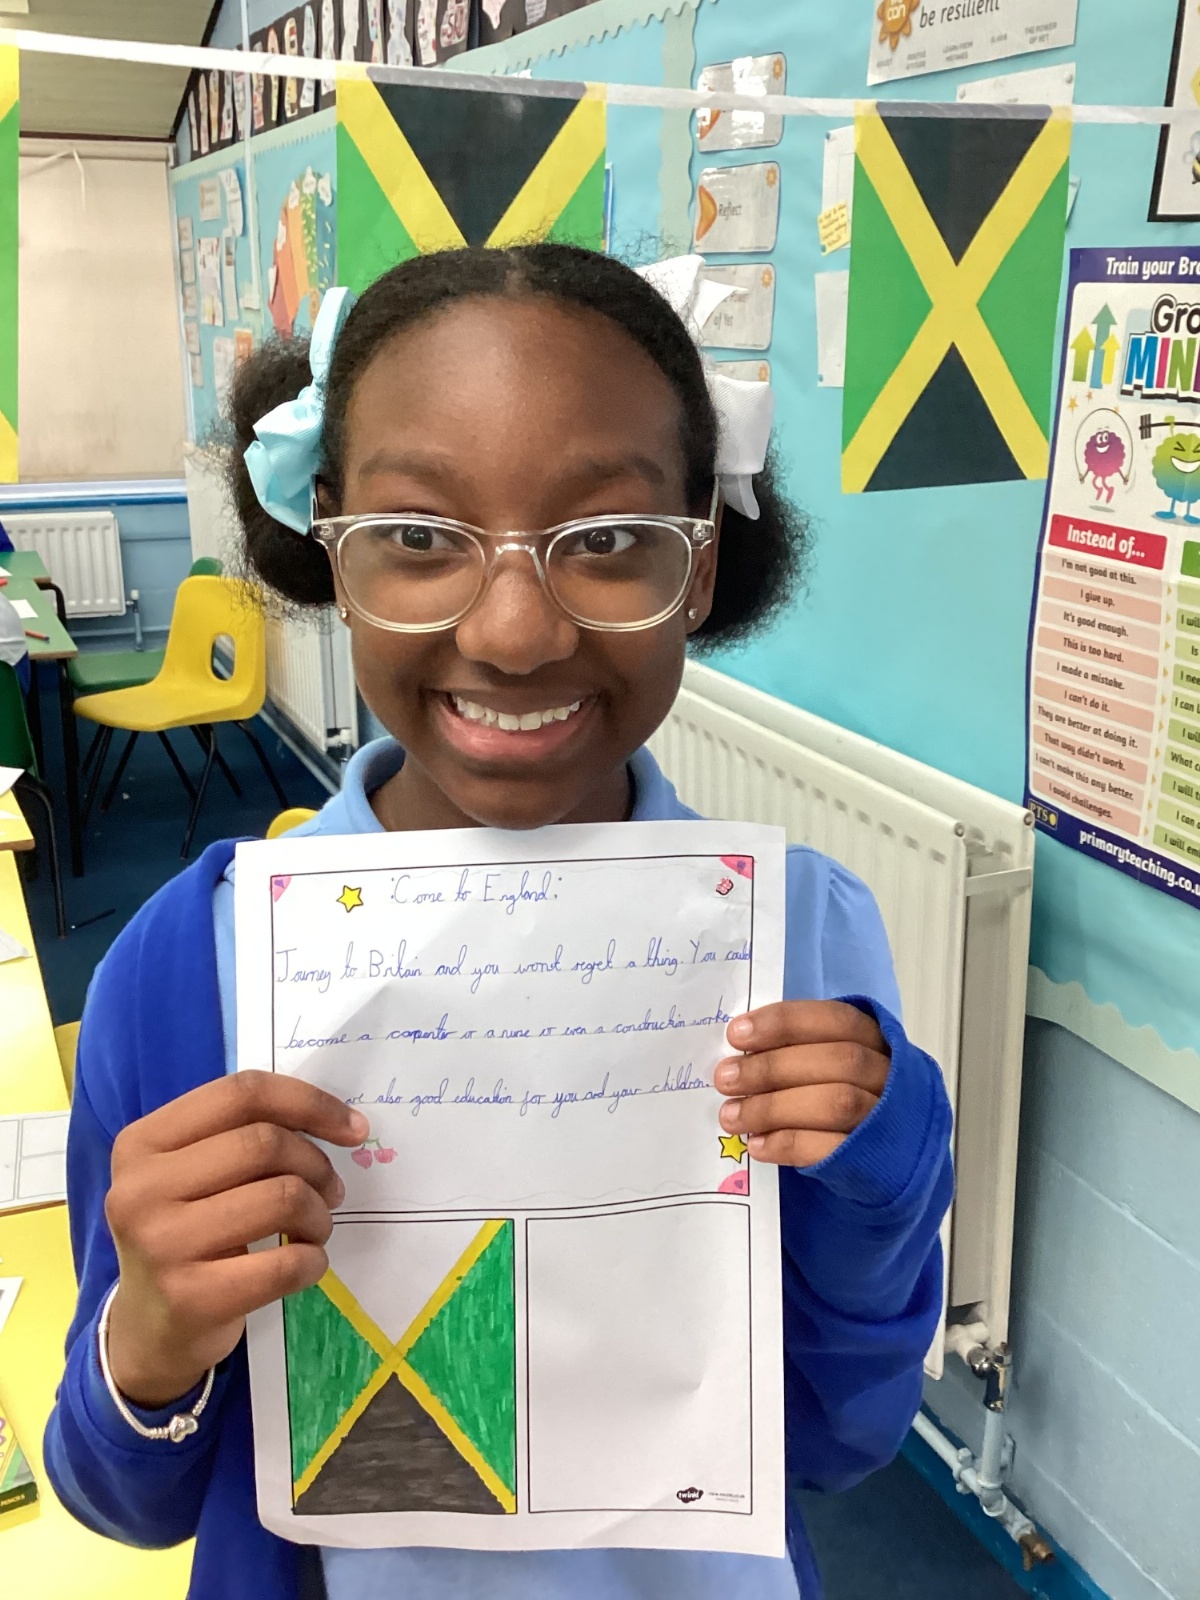 be resilient
Reflect
of Yet
Train your Bra
Gro
MIN
Instead of...
I'm not good at this.
I give up.
It's good enough.
This is too hard.
I made a mistake.
I can't do it.
They are better at doing it.
That way didn't work.
I can't make this any better.
I avoid challenges.
I wil
Is
I nee
I can l
I wil
What c
I will t
I can a
I will em
PTS
primaryteaching.co.u
:Come to England:
Journey to Britain and you wont regret a thing. You could
become a carpenter or a nurse or even a construckin worker
are also good education for you and your children.
twinkl